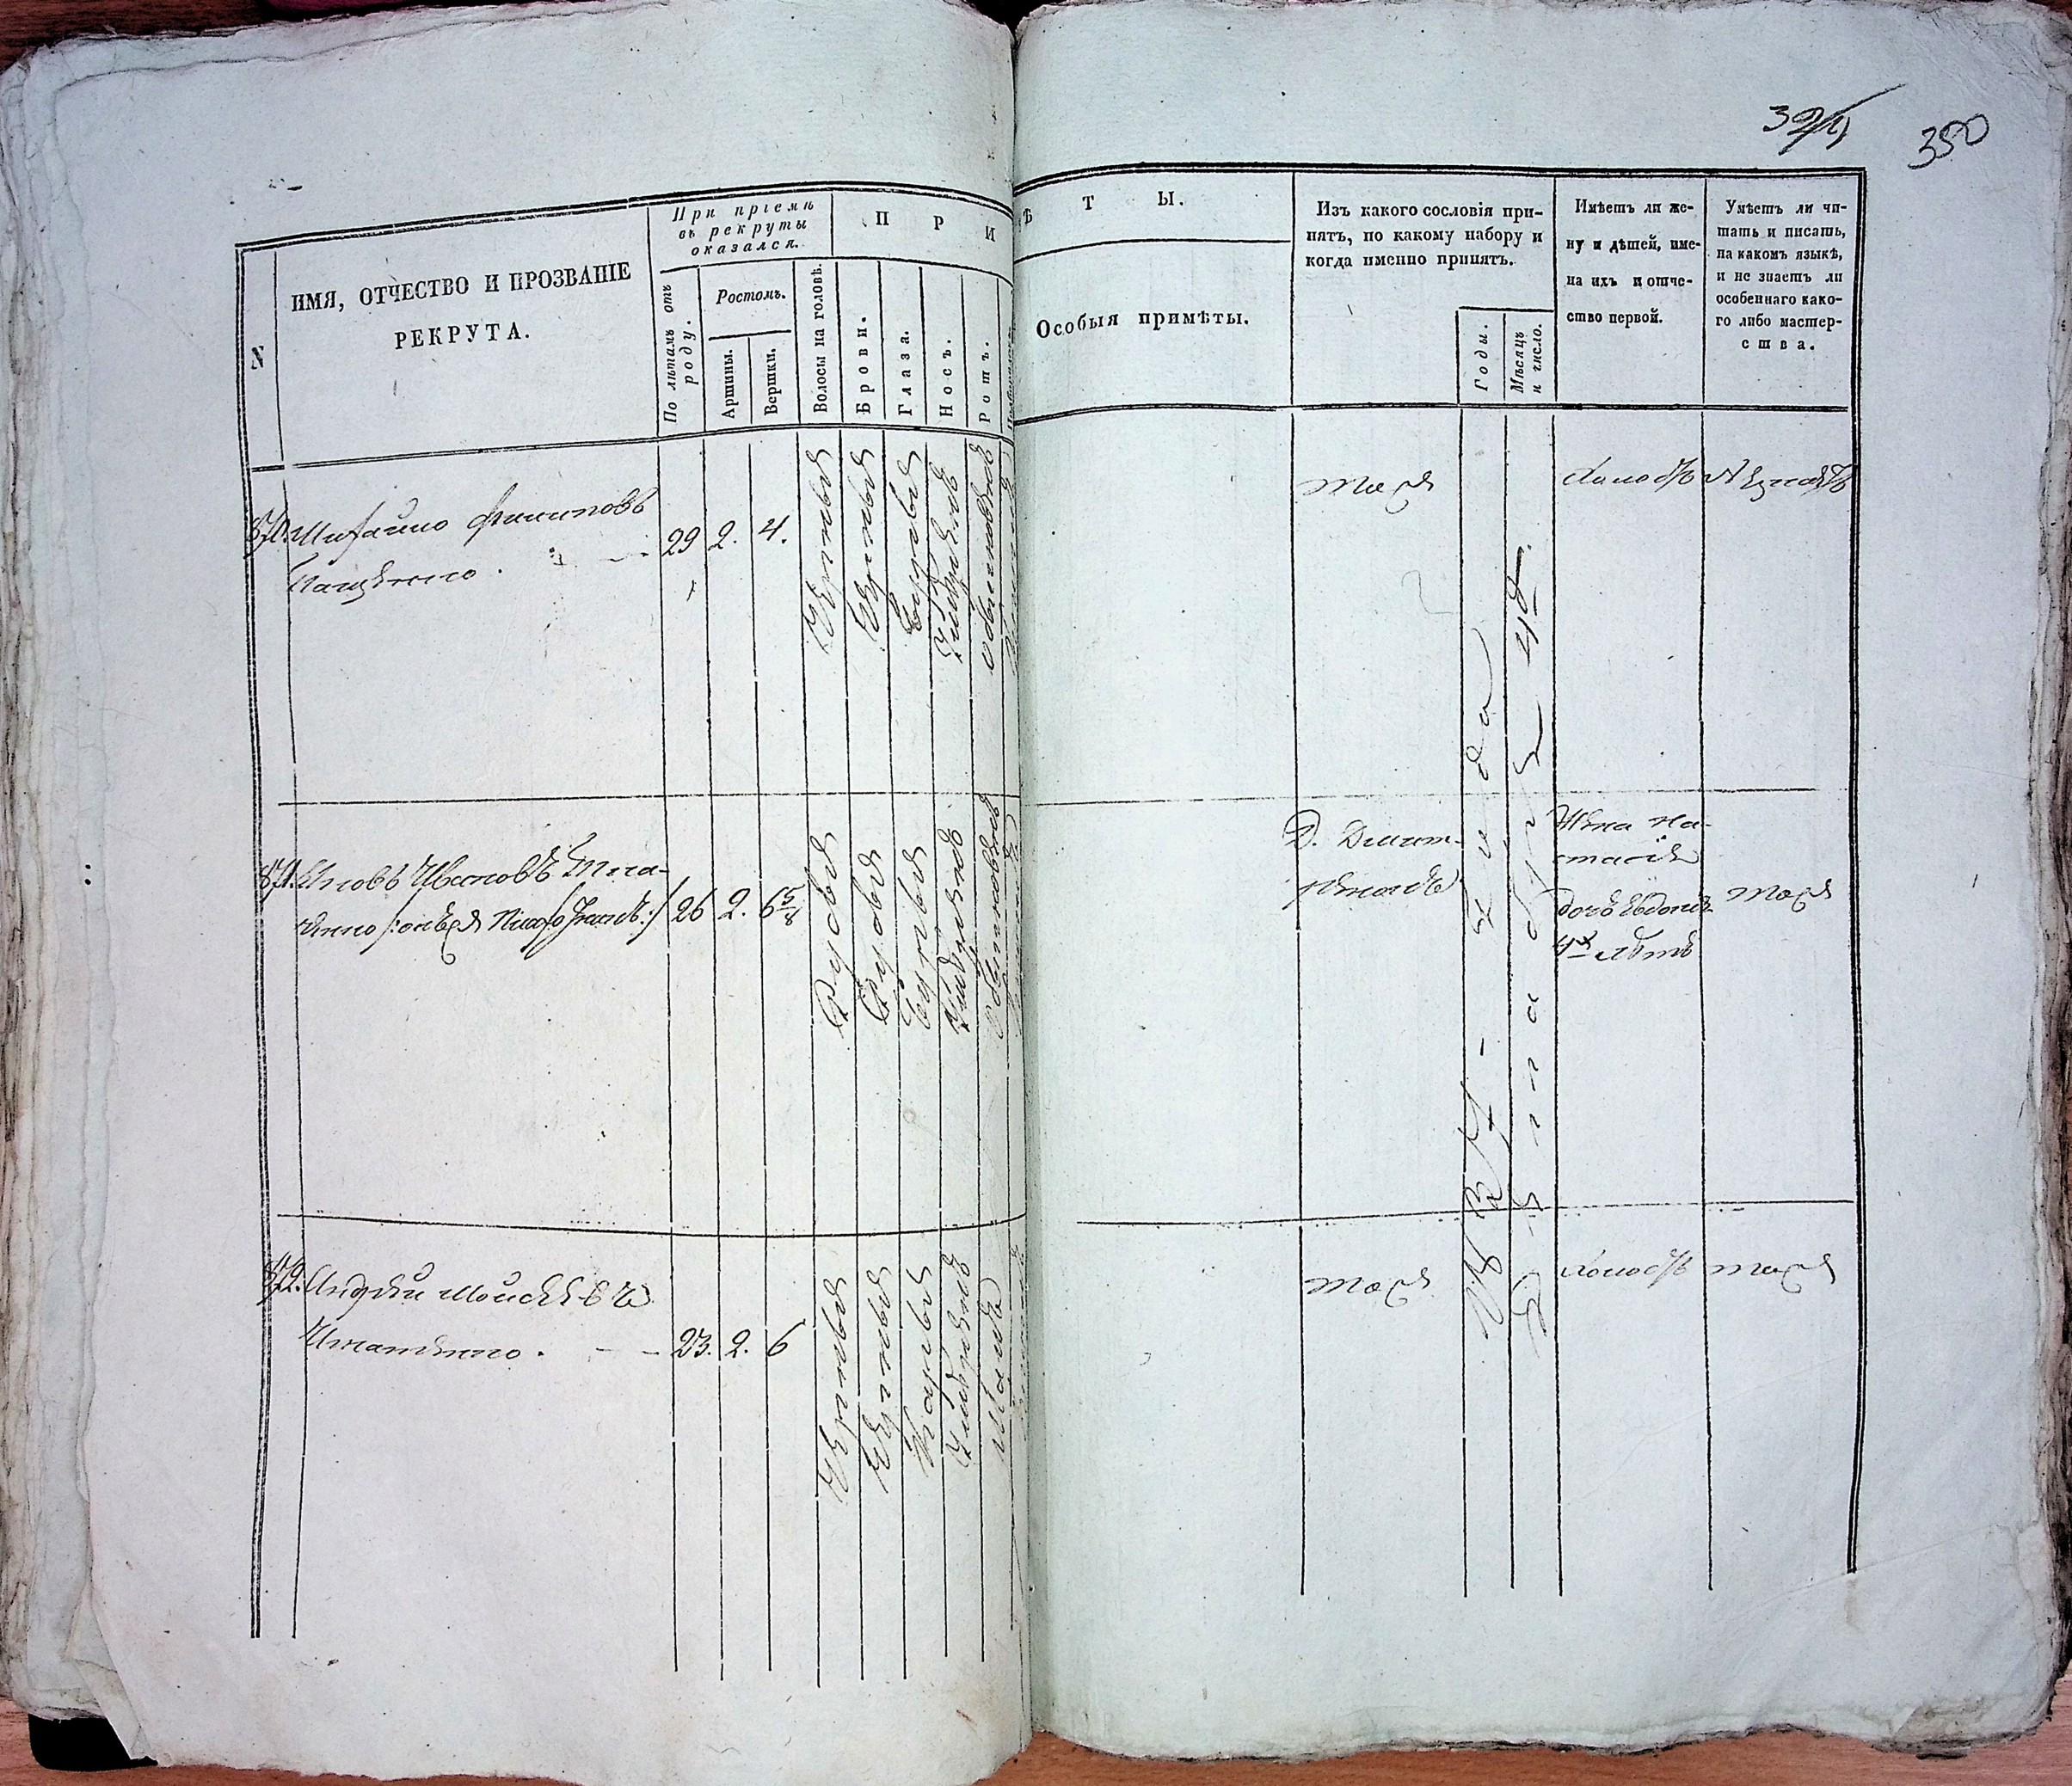 324
350
N
ИМЯ, ОТЧЕСТВО И ПРОЗВАНІЕ
РЕКРУТА.
При пріемѣ
въ рекруты
оказался.
По лѣтамъ отъ
роду.
Ростомъ.
Аршины.
Вершки.
П Р И
Волосы на головѣ.
Брови.
Глаза.
Носъ.
Ротъ.
Ѣ Т Ы.
Особыя примѣты.
Изъ какого сословія при-
нятъ, по какому набору и
когда именно принятъ.
Годы.
Мѣсяцъ
и число.
Имѣетъ ли же-
ну и дѣтей, име-
на ихъ и отче-
ство первой.
Умѣетъ ли чи-
тать и писать,
на какомъ языкѣ,
и не знаетъ ли
особеннаго како-
го либо мастер-
ства.
870. Михайло Филиповъ
29 2. 4.
Черныя
Черныя
Карыя
Умѣренъ
обыкновенъ
Тоже
Холостъ
Незнаетъ
871. Яковъ Ивановъ
26 2. 6 5/8
Русыя
Русыя
Карыя
Умѣренъ
Обыкновенъ
Д. Дмит-
Жена На-
стасія
дочь Евдокія
4х лѣтъ
Тоже
872. Андрей Моисеевъ
Игнатенко.
23. 2. 6
Черныя
Черныя
Карыя
Умѣренъ
Малъ
Тоже
Холостъ
Тоже
года